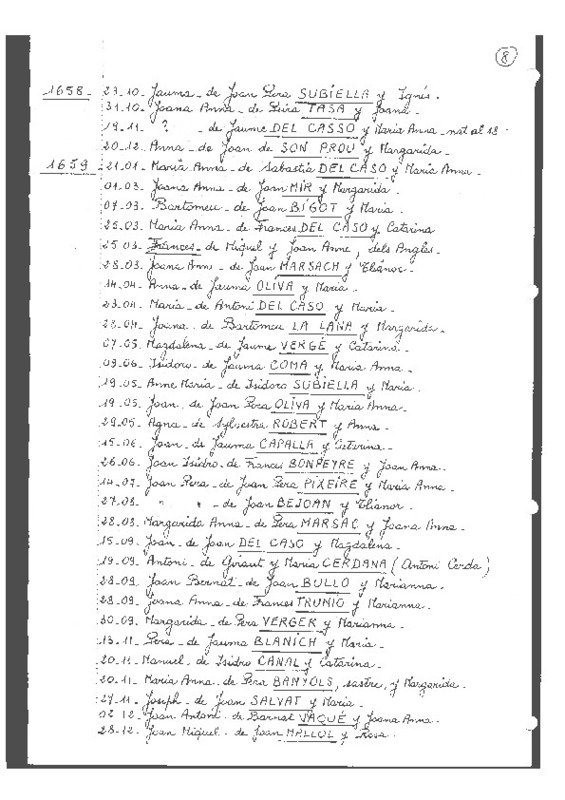 8
1658- 23-10- Jauma- de Joan Pera SUBIELLA y Ignés.
31.10- Joana Anna- de Pera TASA y Joana.
19.11- ? - de Jaume DEL CASSO y Maria Anna- nat al 18.
20-12- Anna- de Joan de SON PROU y Margarida-
1659 -21.01- Maria Anna- de Sabastia DEL CASO y Maria Anna-
01.03- Joana Anna- de Joan MIR y Margarida-
07.03- Bartomeu- de Joan BIGOT y Maria-
25.03- Maria Anna- de Frances DEL CASO y Catarina
25 03- Frances- de Miquel y Joan Anne, dels Angles-
28.03- Joana Ann- de Joan MARSACH y Elianor-
14.04- Anna- de Jauma OLIVA y Maria-
23.04- Maria- de Antoni DEL CASO y Maria-
28-04- Joana- de Bartomeu LA LANA y Margarida-
07.05- Magdalena- de Jaume VERGÉ y Catarina-
09.06- Isidoro- de Jauma COMA y Maria Anna-
19.05- Anne Maria- de Isidoro SUBIELLA y Maria.
19.05- Joan- de Joan Pera OLIVA y Maria Anna-
29.05- Agna- de Sylvestra ROBERT y Anna-
15-06- Joan- de Jauma CAPALLA y
26.06- Joan Isidro- de Frances BONPEYRE y Joan Anna-
14-07- Joan Pera- de Joan Pera PIXEIRE y Maria Anna-
27.08- " " - de Joan BEJOAN y Elianor-
28.08- Margarida Anna- de Pera MARSAC y Joana Anna-
15-09- Joan- de Joan DEL CASO y Magdalena-
19.09- Antoni- de Giraut y Maria CERDANA (Antoni Cerda)
28-09- Joan Bernat- de Joan BULLO y Marianna-
28.09- Joana Anna- de Frances TRUNIO y Marianna-
30.09- Margarida- de Pera VERGER y Marianna-
13-11- Pera- de Jauma BLANICH y Maria-
20.11- Manuel- de Isidro CANAL y Catarina-
20-11- Maria Anna- de Pera BANYOLS, sastre, y Margarida-
27.11- Joseph- de Joan SALVAT y Maria-
02 12- Joan Antoni- de Barnat VAQUÉ y Joana Anna-
28-12- Joan Miquel- de Joan MALLOL y Rosa-